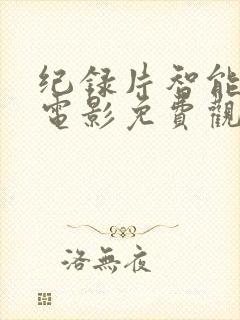 纪录片智能
電影免費觀
洛無夜